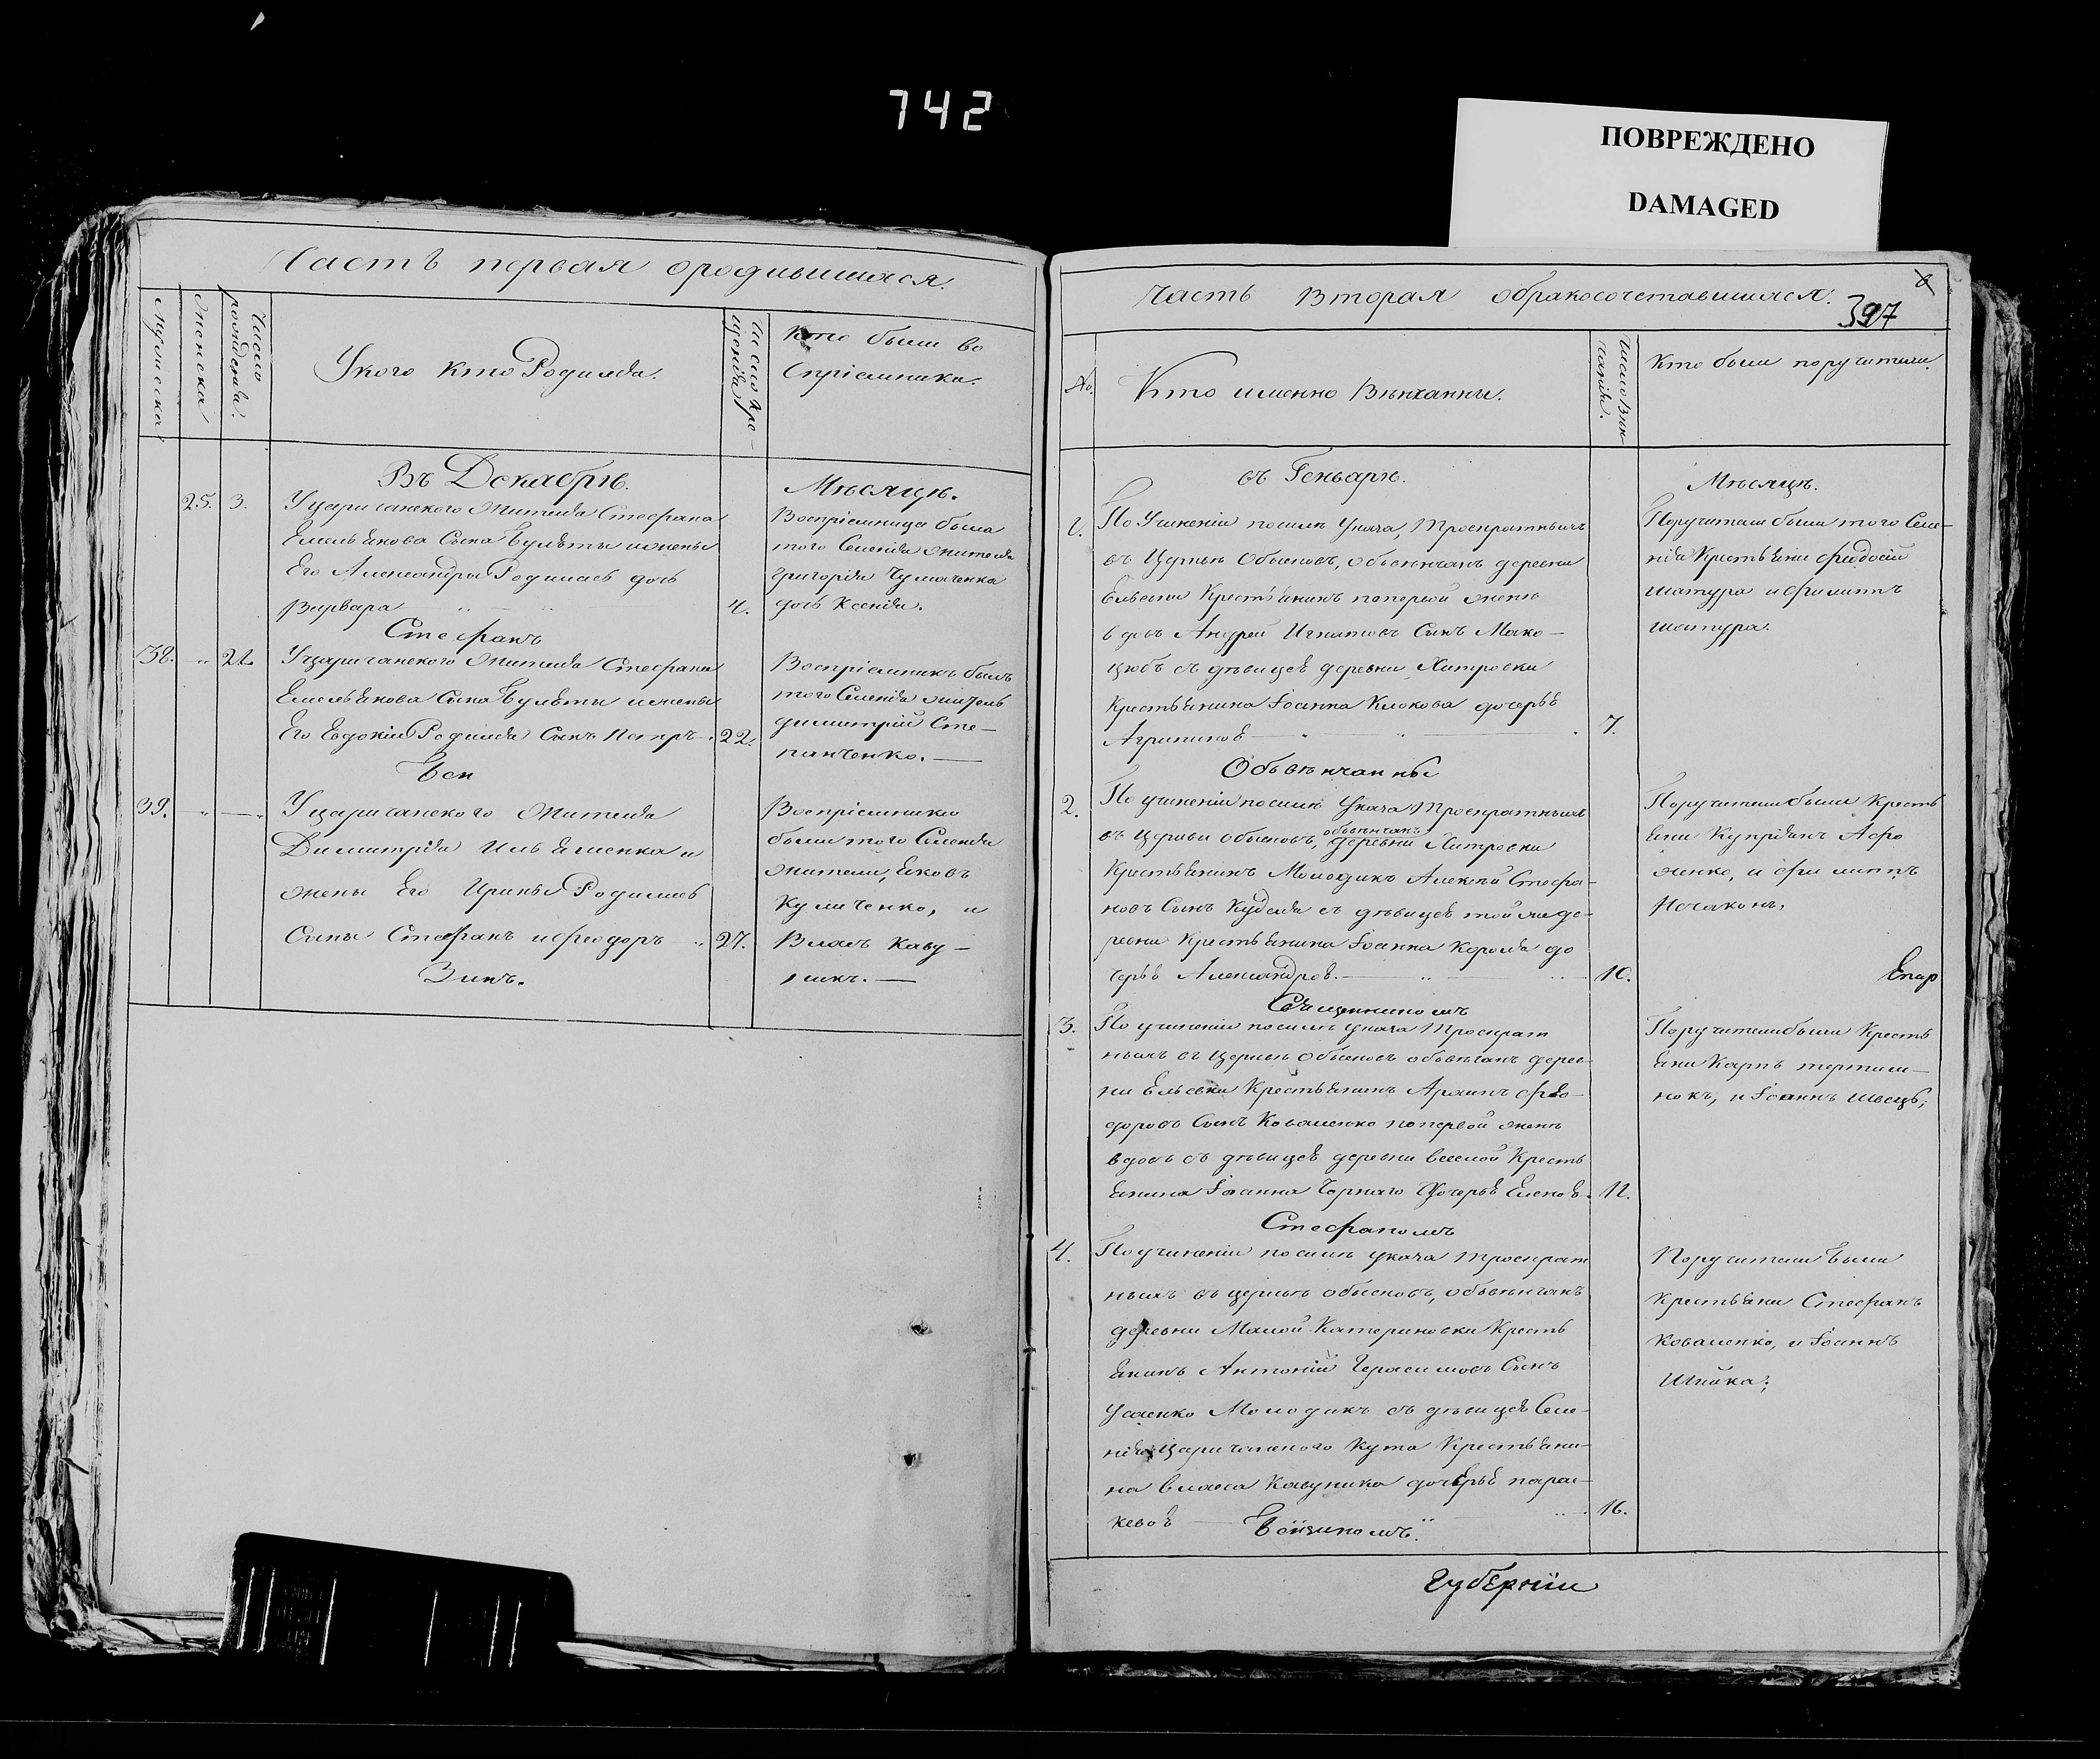 742
ПОВРЕЖДЕНО
DAMAGED
Часть первая ородившихся.
мужеска
женска
Число рожденія.
У кого кто Родился.
Число кре-
щенія
Кто были во
спріемники.
Въ Декабрѣ.
Мѣсяцѣ.
25. 3.
У царичанского жителя Стефана
Емельянова Сына жены
Его Александры Родилась дочь
Варвара 4.
Воспріемница была
того Селенія жителя
Григорія Чумаченка
дочь Ксенія.
Стефанъ
38. 22.
У царичанского жителя Стефана
Емельянова Сына жены
Его Евдокіи Родился Сынъ Петръ 22.
Воспріемникъ былъ
того Селенія житель
димитрій Сте-
панченко.
39.
У царичанского жителя
Димитрія Ильяшенка и
жены Его Ирины Родились
Сыны Стефанъ и феодоръ 27.
Воспріемники
были того Селенія
жители, Яковъ
Куличенко, и
Власъ Каву-
никъ.
Часть вторая обракосочетавшихся.
397
№
Кто именно Вѣнчанны.
Число Вѣн-
чанія.
Кто были поручители.
въ Геньварѣ.
Мѣсяцѣ.
1. По Учиненіи посилѣ Указа, Троекратныхъ
въ Церквѣ Обысковъ, обвѣнчанъ деревни
Ельевки Крестьянинъ поперьвой женѣ
вдовъ Андрей Игнатовъ Сынъ Мако-
цюбъ съ дѣвицею деревни Хитровки
Крестьянина Іоанна Клокова дочерью
Агрипиною 7.
Поручители были того Селе-
нія Крестьяни феодосій
шатура и филиппъ
шатура.
Обвѣнчанны
2. По учиненіи посилѣ Указа Троекратныхъ
въ Церкви обысковъ, обвѣнчанъ деревни Хитровки
Крестьянинъ Молодикъ Алексѣй Стефа-
новъ Сынъ Кудель съ дѣвицею той же де-
ревни Крестьянина Іоанна Короля до
черью Александрою. 10.
Поручители были Кресть
яни Купріянъ Афо
ненко, и филиппъ
Епар
Священникомъ
3. По учиненіи посилѣ указа Троекрат
ныхъ въ Церквѣ Обысковъ обвѣнчанъ дерев-
ни Ельевки Крестьянинъ Архипъ фео-
доровъ Сынъ Коваленко поперьвой женѣ
вдовъ съ дѣвицею деревни веселой Кресть
янина Іоанна Чорнаго Дочерью Еленою. 12.
Поручители были Кресть
яни Карпъ
и Іоаннъ швецъ;
Стефаномъ
4. По учиненіи посилѣ указа Троекрат
ныхъ въ церквѣ обысковъ, обвѣнчанъ
деревни Малой Катериновки Кресть
янинъ Антоній Герасимовъ Сынъ
Усенко Молодикъ съ дѣвицею Селе-
нія Царичанского Кута Крестьяни-
на власа Кавуника дочерью парас-
кевою 16.
Поручители были
Крестьяни Стефанъ
Коваленко, и Іоаннъ
Шпика;
Губерніи